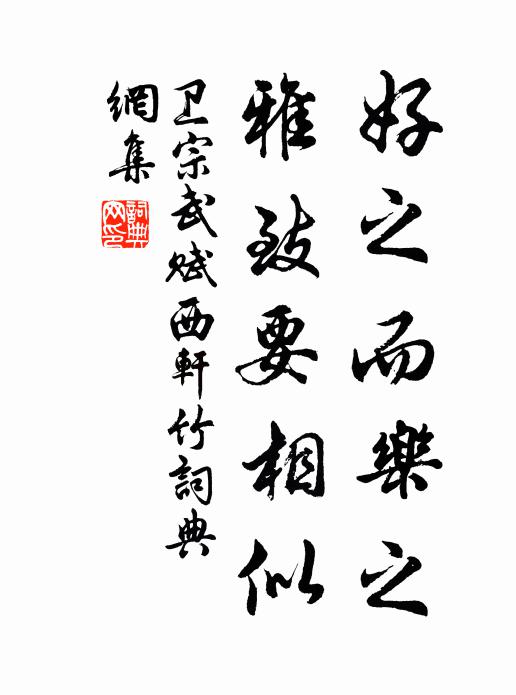 好之而樂之
雅致要相似
卫宗武賦西軒竹詞典
網集
詞典
网印